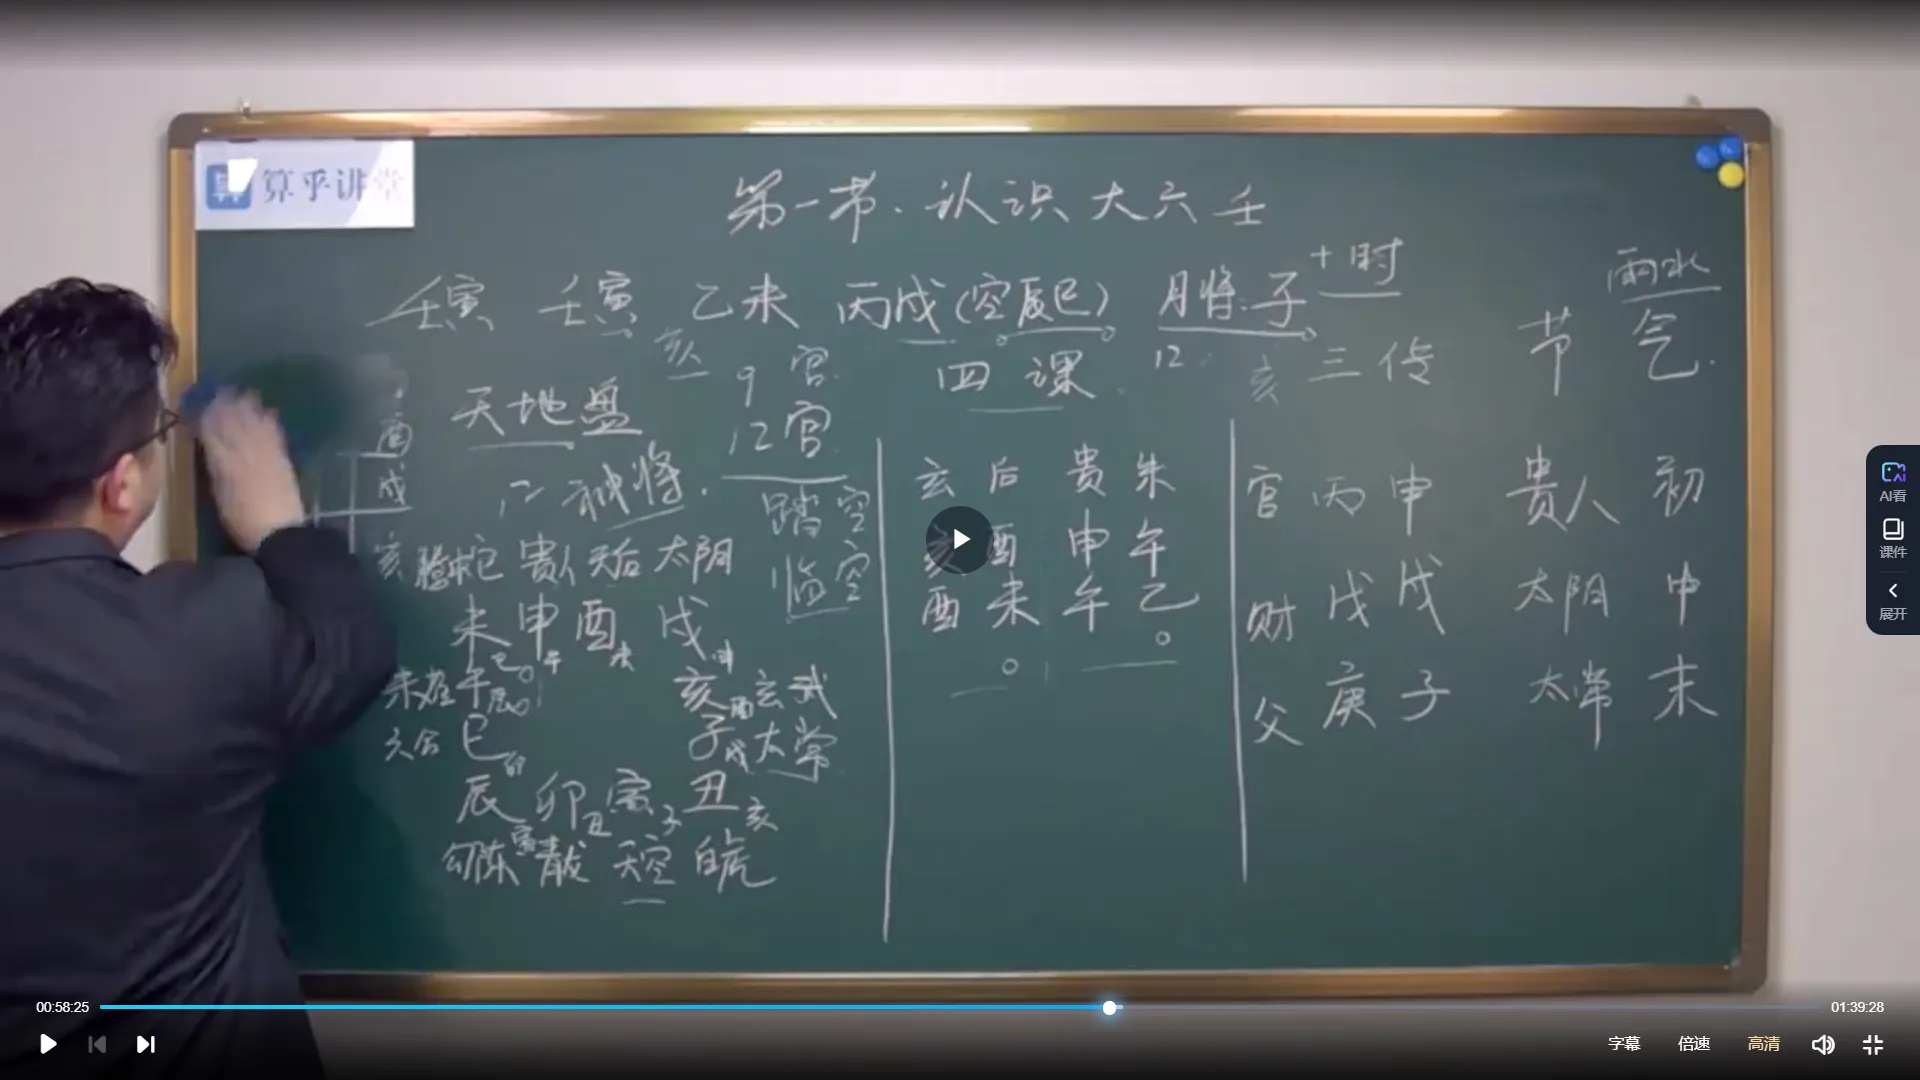 算乎讲堂
第一节.认识大六壬
壬寅 壬寅 乙未 丙戌(空辰巳) 月将:子 +时
雨水
亥
9宫
12宫
四课
12
亥
三传
节气.
天地盘
酉
戌
亥
12神将.
踏空
临空
腾蛇 贵人 天后 太阴
未 申 酉 戌
巳 午 未 申
朱雀 午 辰
亥 酉 玄武
六合 巳 卯
子 戌 太常
辰 卯 寅 丑
寅 丑 子 亥
勾陈 青龙 天空 白虎
玄 后 贵 朱
亥 酉 申 午
酉 未 午 乙
官 丙 申 贵人 初
财 戊 戌 太阴 中
父 庚 子 太常 末
AI看
课件
展开
00:58:25
01:39:28
字幕 倍速 高清